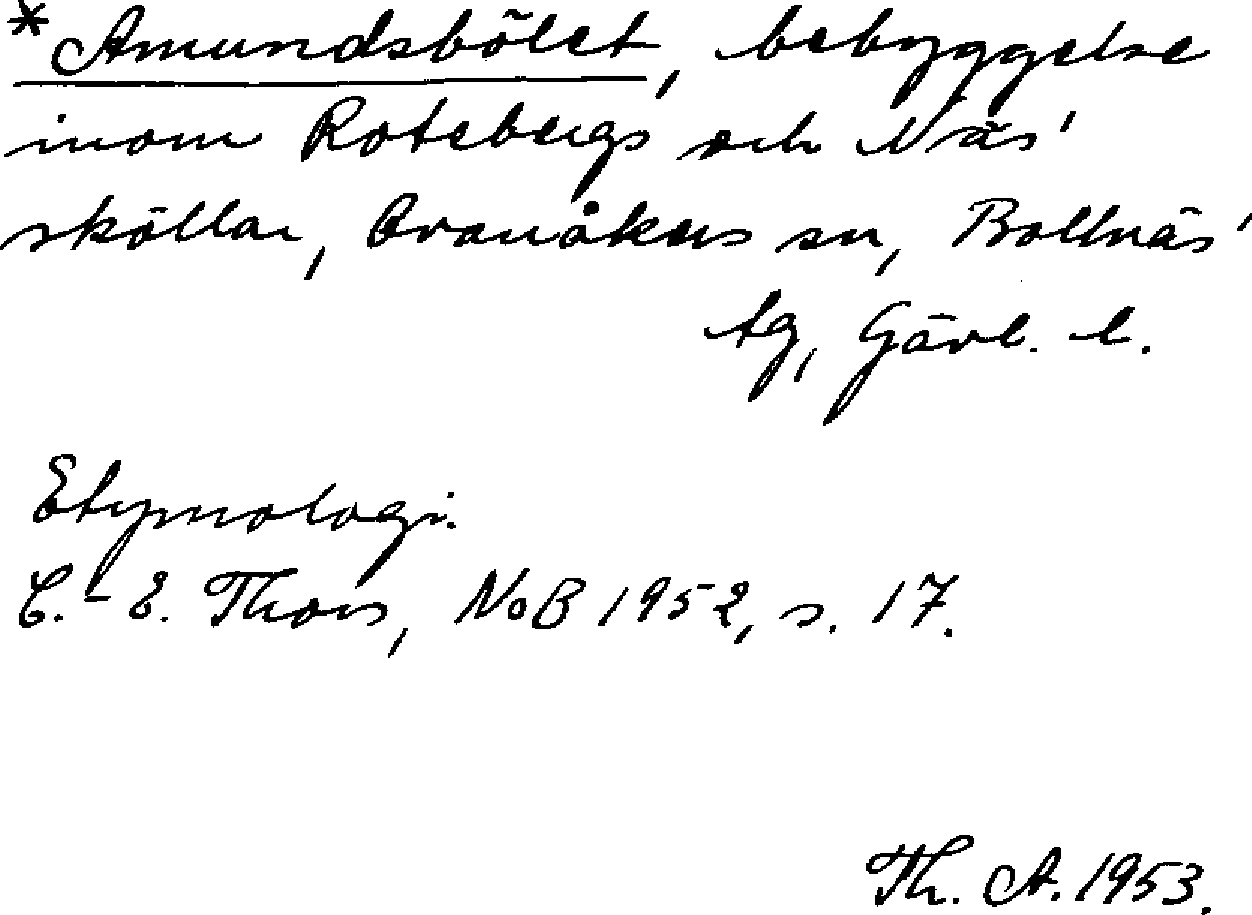 *Amundsbölet, bebyggelse
inom Rotebergs och Näs'
sköllar, Ovanåkers sn, Bollnäs'
tg, Gävl. l.
Etymologi.
C.-E. Thors, NoB 1952, s. 17.
Th. A. 1953.